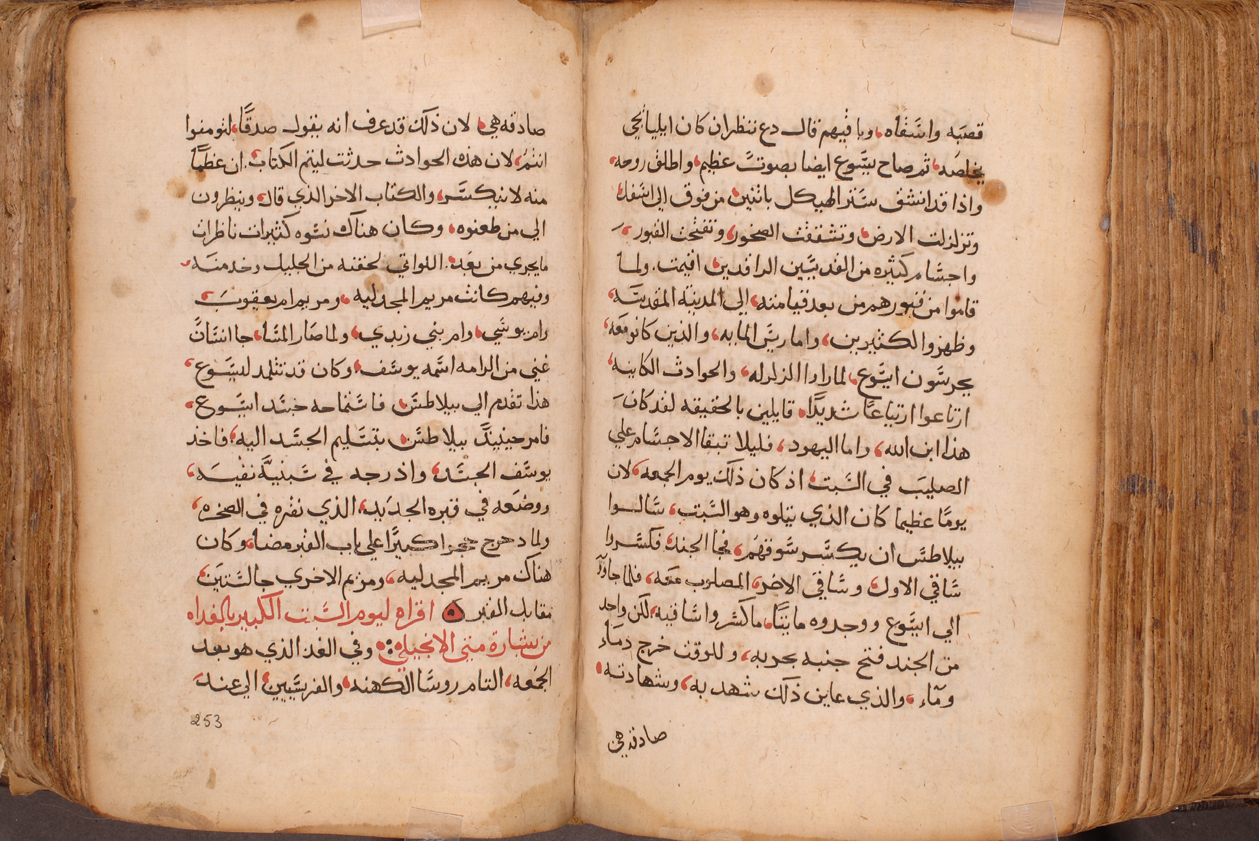 قصبه واسقاه، وباقيهم قال دع ننظر ان كان ايليا يجي
يخلصه، ثم صاح يسوع ايضا بصوت عظيم، واطلق روحه،
واذا قد انشق ستر الهيكل باثنين، من فوق الي اسفل،
وتزلزلت الارض، وتشققت الصخور، وتفتحت القبور،
واجسام كثيره من القديسين الراقدين، اقيمت. ولما
قاموا من قبورهم من بعد قيامته، الي المدينه المقدسه،
وظهروا لكثيرين، واما ريس المايه، والذين كانوا معه،
يحرسون ايسوع، لما راوا الزلزله، والحوادث الكاينه،
ارتاعوا ارتياعًا شديدًا، قايلين بالحقيقه لقد كان
هذا ابن الله، واما اليهود، فليلا تبقا الاجسام علي
الصليب في السبت، اذ كان ذلك يوم الجمعه، لان
يومًا عظيما كان الذي يتلوه وهو السبت، سالوا
بيلاطس ان يكسر سوقهم، فجا الجند، فكسروا
ساقي الاول، وساقي الاخر، المصلوب معه، فلما جاوا
الي ايسوع ووجدوه مايتًا، ما كسروا ساقيه، لكن واحد
من الجند فتح جنبه بحربه، وللوقت خرج دماء
وماء، والذي عاين ذلك شهد به، وشهادته،
صادقه هي
صادقه هي، لان ذلك قد عرف انه يقول صدقًا، لتومنوا
انتم، لان هذه الحوادث حدثت ليتم الكتاب، ان عظمًا
منه لا ينكسر، والكتاب الاخر الذي قال، وينظرون
الي من طعنوه، وكان هناك نسوه كثيرات ناظرات
ما يجري من بعد، اللواتي لحقنه من الجليل وخدمنه
وفيهم كانت مريم المجدليه، ومريم ام يعقوب
وام يوسي، وام بني زبدي، ولما صار المسا، جا انسان
غني من الرامه اسمه يوسف، وكان قد تتلمد ليسوع،
هذا تقدم الي بيلاطس، فاستماحه جسد ايسوع،
فامر حينيذ بيلاطس، بتسليم الجسد اليه، فاخد
يوسف الجسد، وادرجه في سبنيه نقيه،
ووضعه في قبره الجديد، الذي نقره في الصخره،
ولما دحرج حجرا كبيرًا علي باب القبر مضا، وكان
هناك مريم المجدليه، ومريم الاخري جالستين،
مقابل القبر ۞ اقراه ليوم السبت الكبير بالغداه
من بشارة متي الانجيلي ۞ وفي الغد الذي هو بعد
الجمعه، التام روسا الكهنه، والفريسيين، الي عند
253